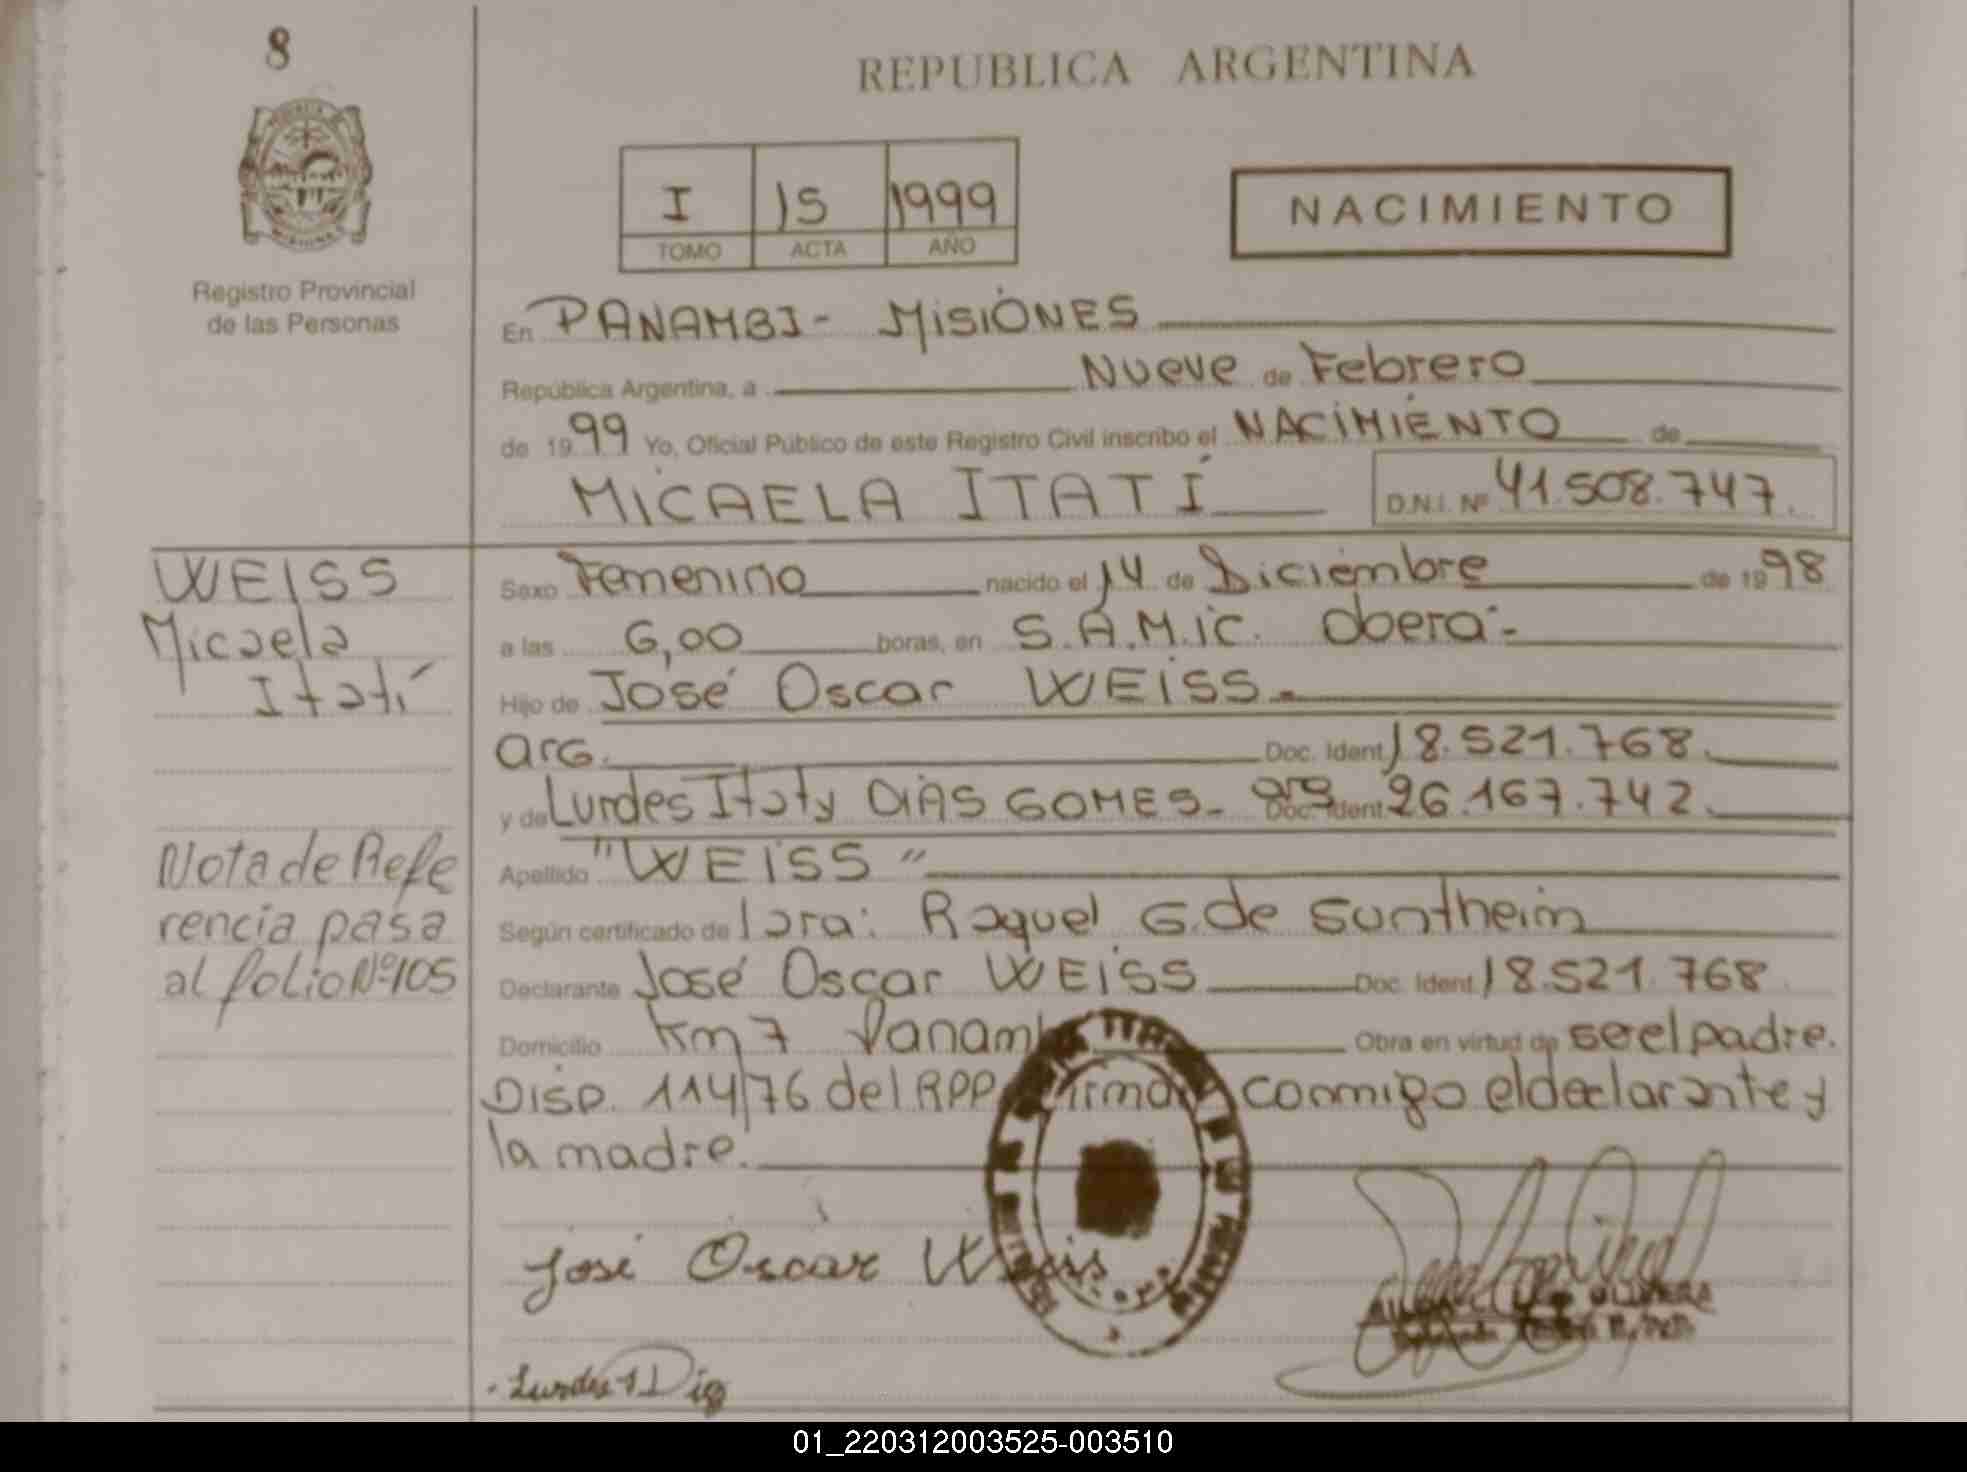 8
REPUBLICA ARGENTINA
I 15 1999
TOMO ACTA AÑO
NACIMIENTO
Registro Provincial
de las Personas
En PANAMBI - MISIONES
República Argentina, a Nueve de Febrero
de 1999 Yo, Oficial Público de este Registro Civil inscribo el NACIMIENTO de
MICAELA ITATÍ D.N.I. Nº 41.508.747.
WEISS
Micaela
Itatí
Sexo Femenino nacido el 14 de Diciembre de 1998
a las 6,00 horas, en S.A.M.ic. Oberá.-
Hijo de José Oscar WEISS.-
arg. Doc. Ident 18.521.768.
y de Lurdes Itaty DIAS GOMES- arg Doc. Ident. 26.167.742.
Nota de Refe
rencia pasa
al folio Nº 105
Apellido "WEISS"
Según certificado de Raquel G. de Suntheim
Declarante José Oscar WEISS Doc. Ident. 18.521.768
Domicilio Km 7 Obra en virtud de ser el padre.
Disp. 114/76 del RPP conmigo el declarante y
la madre.
José Oscar Weis
01_220312003525-003510